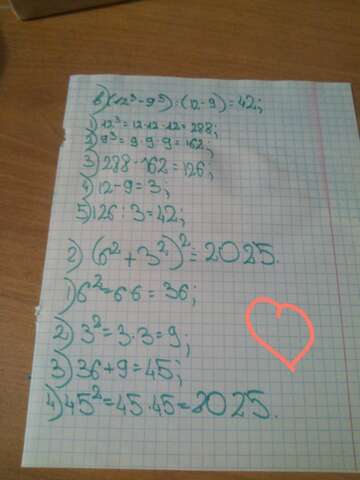 в) (12³-9³):(12-9)=42;
1) 12³=12·12·12=288;
2) 9³=9·9·9=162;
3) 288-162=126;
4) 12-9=3;
5) 126:3=42;
г) (6²+3²)²=2025.
1) 6²=6·6=36;
2) 3²=3·3=9;
3) 36+9=45;
4) 45²=45·45=2025.